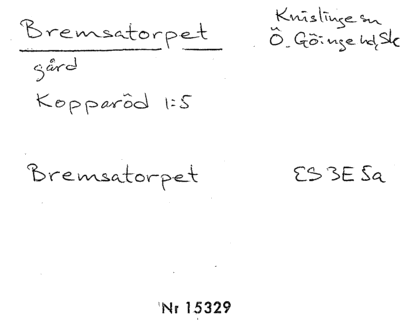 Bremsatorpet
Knislinge sn
Ö. Göinge hd, Sk
gård
Kopparöd 1:5
Bremsatorpet
ES 3E 5a
Nr 15329